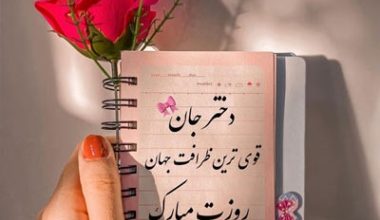 دختر جان
قوی ترین ظرافت جهان
روزت مبارک